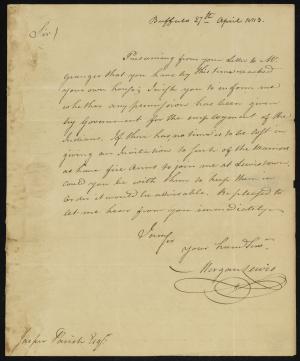 Buffalo 27th April 1813.
Sir/
Presuming from your Letter to Mr.
Granger that you have by this time reached
your own house; I wish you to inform me
whether any permission has been given
by Government for the employment of the
Indians. If there has no time is to be lost in
giving an Invitation to such of the Warriors
as have fire Arms to join me at Lewistown.
could you be with them to keep them in
Order it would be adviseable. Be pleased to
let me hear from you immediately.
Yours
your humb Serv
Morgan Lewis
Jasper Parish Esqr.